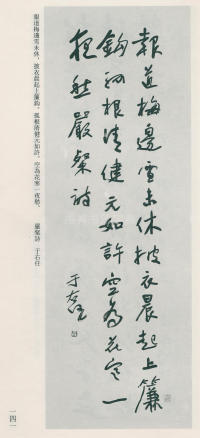 報道梅邊雪未休披衣晨起上簾
鉤孤根清健元如許空為花寒一
夜愁嚴粲詩
于右任
報道梅邊雪未休，披衣晨起上簾鉤。孤根清健元如許，空為花寒一夜愁。 嚴粲詩 于右任
一四一